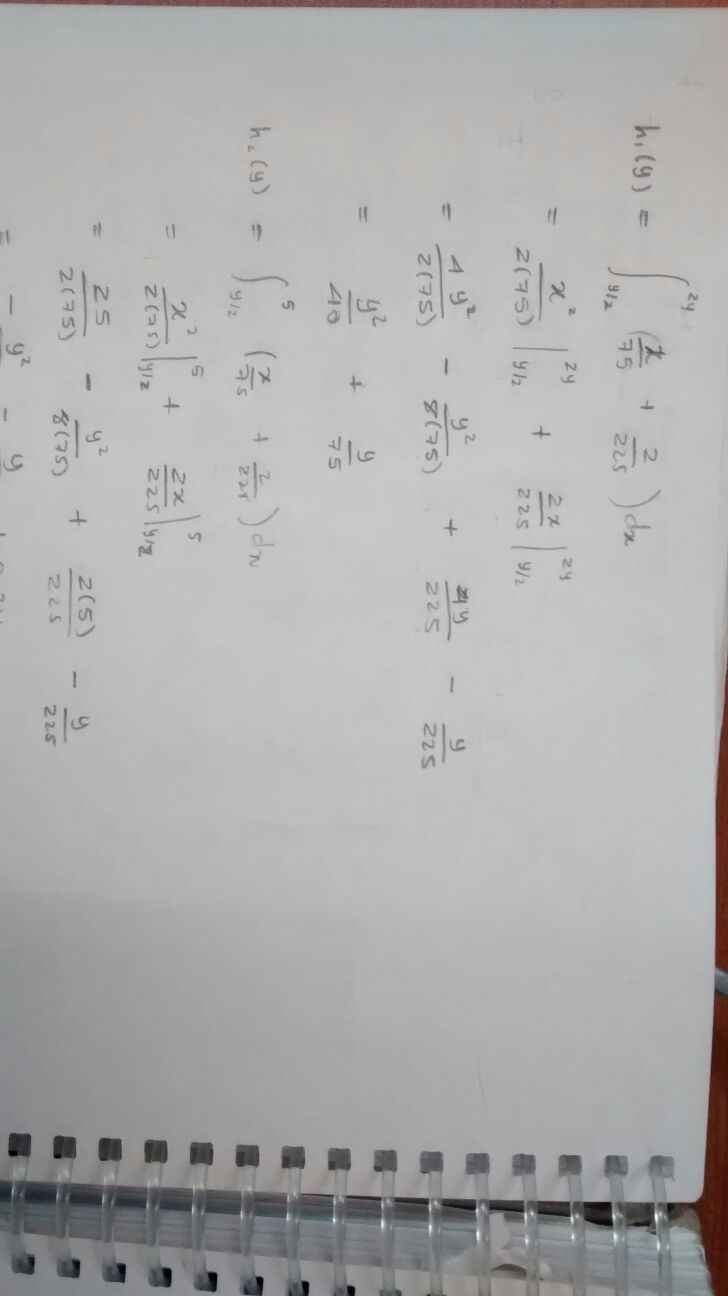 h₁(y) = ∫_{y/2}^{2y} (x/75 + 2/225) dx
= x²/2(75) |_{y/2}^{2y} + 2x/225 |_{y/2}^{2y}
= 4y²/2(75) - y²/8(75) + 4y/225 - y/225
= y²/40 + y/75
h₂(y) = ∫_{y/2}^{5} (x/75 + 2/225) dx
= x²/2(75) |_{y/2}^{5} + 2x/225 |_{y/2}^{5}
= 25/2(75) - y²/8(75) + 2(5)/225 - y/225
= - y² - y